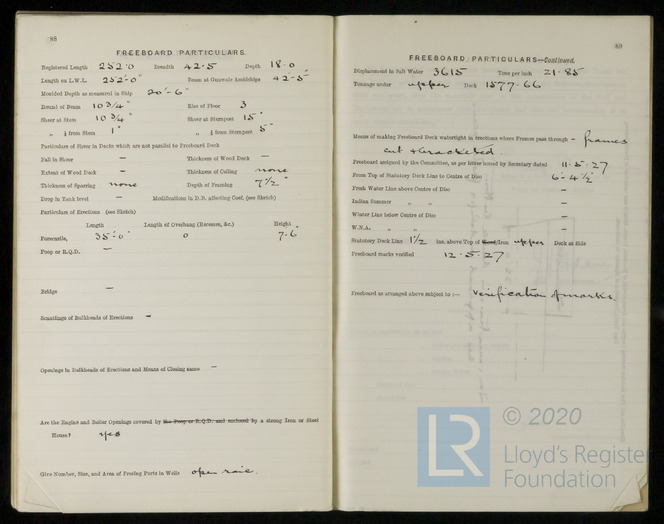 88
FREEBOARD PARTICULARS.
Registered Length 252'·0 Breadth 42·5 Depth 18·0
Length on L.W.L. 252'-0" Beam at Gunwale Amidships 42'-5"
Moulded Depth as measured in Ship 20'-6"
Round of Beam 10 3/4" Rise of Floor 3
Sheer at Stem 10 3/4" Sheer at Sternpost 15"
„ ⅛ from Stem 1" „ ⅛ from Sternpost 5"
Particulars of Sheer in Decks which are not parallel to Freeboard Deck
Fall in Sheer — Thickness of Wood Deck —
Extent of Wood Deck — Thickness of Ceiling none
Thickness of Sparring none Depth of Framing 7 1/2"
Drop in Tank level — Modifications in D.B. affecting Coef. (see Sketch)
Particulars of Erections (see Sketch)
Length Length of Overhang (Recesses, &c.) Height
Forecastle, 35'-0" 0 7-6"
Poop or R.Q.D. —
Bridge —
Scantlings of Bulkheads of Erections —
Openings in Bulkheads of Erections and Means of Closing same —
Are the Engine and Boiler Openings covered by the Poop or R.Q.D. and enclosed by a strong Iron or Steel
House? yes
Give Number, Size, and Area of Freeing Ports in Wells open rail.
89
FREEBOARD PARTICULARS—Continued.
Displacement in Salt Water 3615 Tons per inch 21·85
Tonnage under upper Deck 1577·66
Means of making Freeboard Deck watertight in erections where Frames pass through - frames
cut & bracketed.
Freeboard assigned by the Committee, as per letter issued by Secretary dated 11·5·27
From Top of Statutory Deck Line to Centre of Disc 6'-4 1/2"
Fresh Water Line above Centre of Disc —
Indian Summer „ „ —
Winter Line below Centre of Disc —
W.N.A. „ „ —
Statutory Deck Line 1 1/2 ins. above Top of Wood/Iron upper Deck at Side
Freeboard marks verified 12·5·27
Freeboard as arranged above subject to :— verification of marks.
LR
© 2020
Lloyd's Register
Foundation